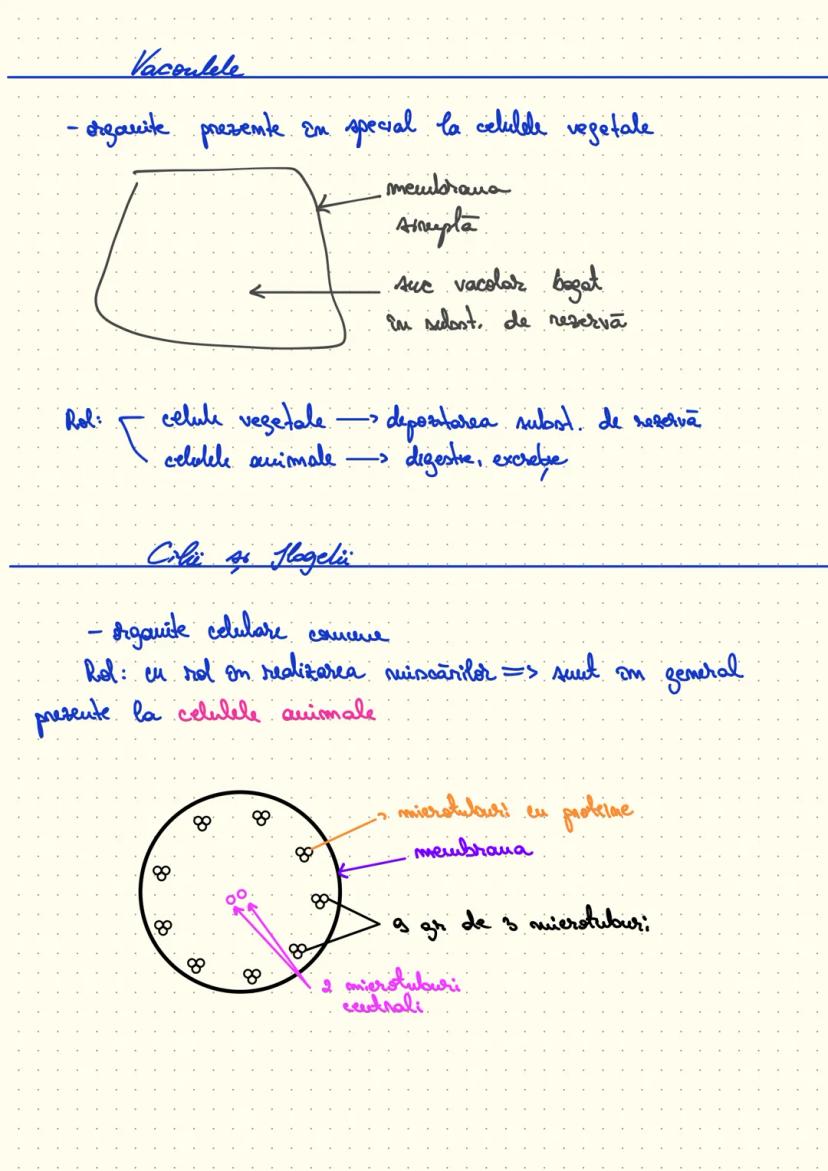 Vacoulele
- organite prezente în special la celulele vegetale
membrana
simplă
suc vacolar bogat
în subst. de rezervă
Rol: celule vegetale → depozitarea subst. de rezervă
celulele animale → digestie, excreție
Cilii și flagelii
- organite celulare comune
Rol: cu rol în realizarea mișcărilor => sunt în general
prezente la celulele animale
microtuburi cu proteine
membrana
9 gr de 3 microtuburi
2 microtuburi
centrali